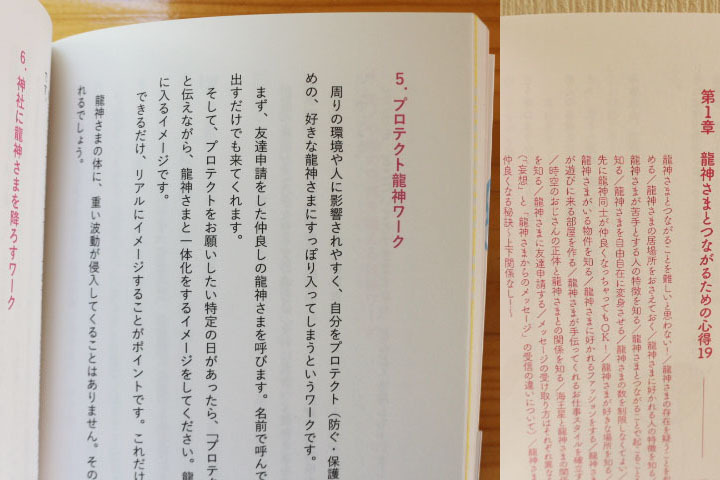 第1章 龍神さまとつながるための心得19
龍神さまとつながることを難しいと思わない!/龍神さまの存在を疑うことを
める/龍神さまの居場所をおさえておく/龍神さまに好かれる人の特徴を知る
龍神さまが苦手とする人の特徴を知る/龍神さまとつながることで起こること
知る/龍神さまを自由自在に変身させる/龍神さまの数を制限しなくてよい/
先に龍神同士が仲良くなっちゃってもOK!/龍神さまが好きな場所を知る
龍神さまがいる物件を知る/龍神さまに好かれるファッションをする/龍神さ
が遊びに来る部屋を作る/龍神さまが手伝ってくれるお仕事スタイルを確立す
/時空のおじさんの正体と龍神さまとの関係を知る/海王星と龍神さまの関
を知る/龍神さまに友達申請する/メッセージの受け取り方はそれぞれ異な
「「妄想」と「龍神さまからのメッセージ」の受信の違いについて)/龍神さま
仲良くなる秘訣〜上下関係なし!〜
5. プロテクト龍神ワーク
周りの環境や人に影響されやすく、自分をプロテクト(防ぐ・保護
めの、好きな龍神さまにすっぽり入ってしまうというワークです。
まず、友達申請をした仲良しの龍神さまを呼びます。名前で呼んで
出すだけでも来てくれます。
そして、プロテクトをお願いしたい特定の日があったら、「プロテク
と伝えながら、龍神さまと一体化をするイメージをしてください。龍
に入るイメージです。
できるだけ、リアルにイメージすることがポイントです。これだけ
龍神さまの体に、重い波動が侵入してくることはありません。その
れるでしょう。
6. 神社に龍神さまを降ろすワーク